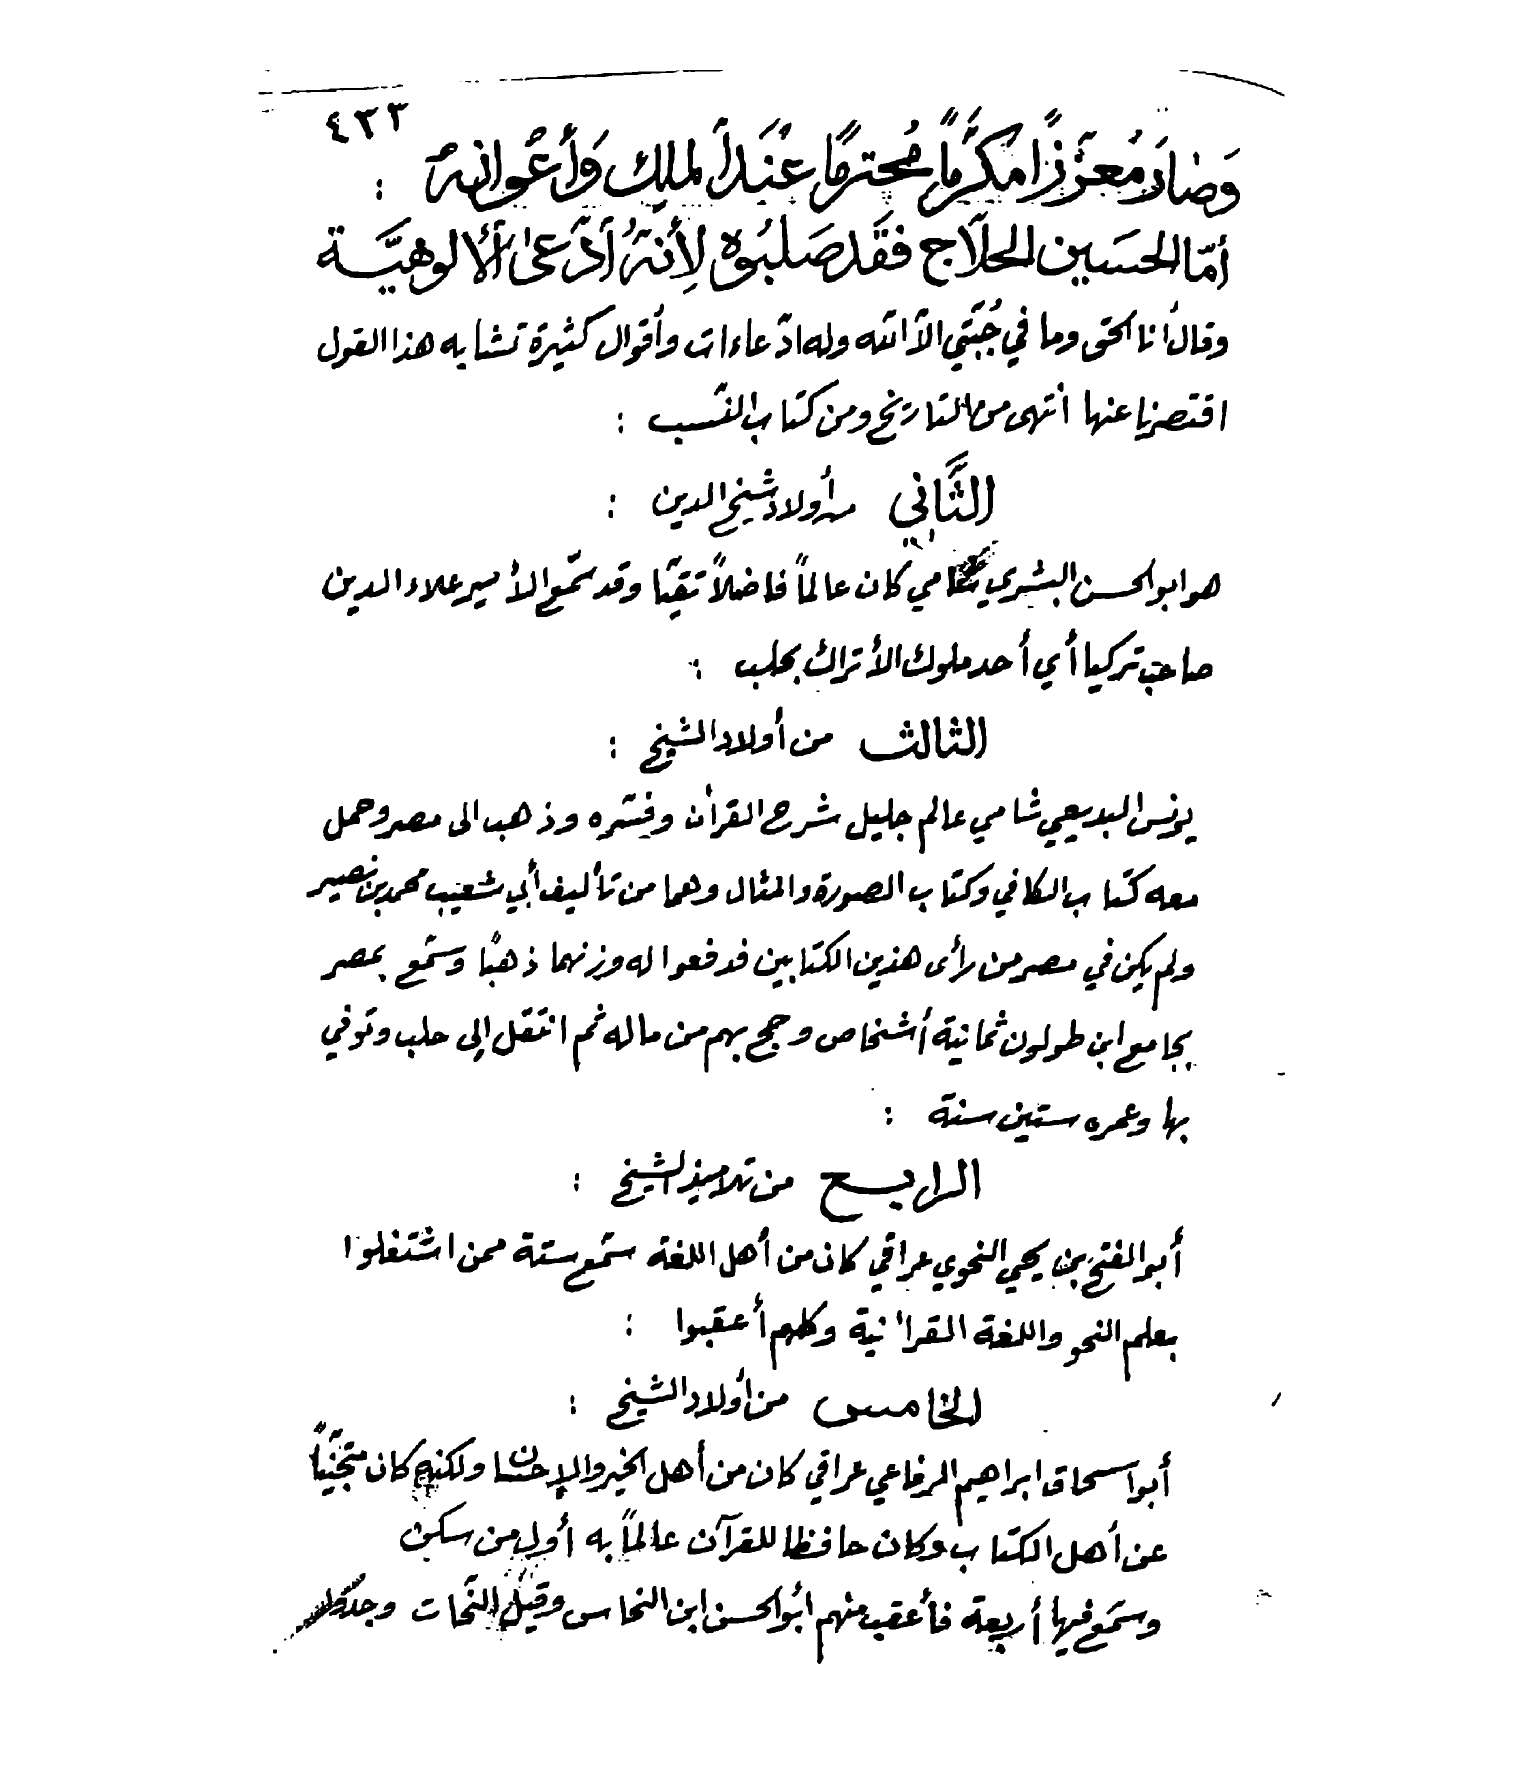 ٤٣٣
وَصَارَ مُعَزَّزًا مُكَرَّمًا مُحترمًا عِنْدَ الملِك وَأَعْوانِهُ :
أمّا الحسَين الحلّاج فقَد صَلبُوه لِأنّهُ أدّعىٰ ألألوهيَّة
وقال أنا الحق وما في جُبّتي الّا اللّه وله ادّعاءات وأقوال كثيرة تشابه هذا القول
اقتصرنا عنها انتهى من التاريخ ومن كتاب النّسب :
الثَّاني من أولاد شيخ الدين :
هو ابو الحسن البشري شامي كان عالماً فاضلاً تقيّا وقد سمّع الأمير علاء الدين
صاحب تركيا أي أحد ملوك الأتراك بحلب :
الثالث من أولاد الشيخ :
يونس البديعي شامي عالم جليل شرح القرأن وفسّره وذهب الى مصر وحمل
معه كتاب الكافي وكتاب الصورة والمثال وهما من تأليف أبي شعيب محمد بن نصير
ولم يكن في مصر من رأى هذين الكتابين فدفعوا له وزنهما ذهبًا وسمّع بمصر
بجامع ابن طولون ثمانية أشخاص وحج بهم من ماله ثم انتقل إلى حلب وتوفي
بها وعمره ستين سنة :
الرابع من تلاميذ الشيخ :
أبو الفتح بن يحي النحوي عراقي كان من أهل اللغة سمّع ستة ممن اشتغلوا
بعلم النحو واللغة القرأنية وكلهم أعقبوا :
الخامس من أولاد الشيخ :
أبو اسحاق ابراهيم الرفاعي عراقي كان من أهل الخير والإحسان ولكنه كان متجنّباً
عن أهل الكتاب وكان حافظا للقرآن عالماً به أول من سكن
وسمّع فيها أربعة فأعقب منهم ابُو الحسن ابن النحاس وقيل النّحات